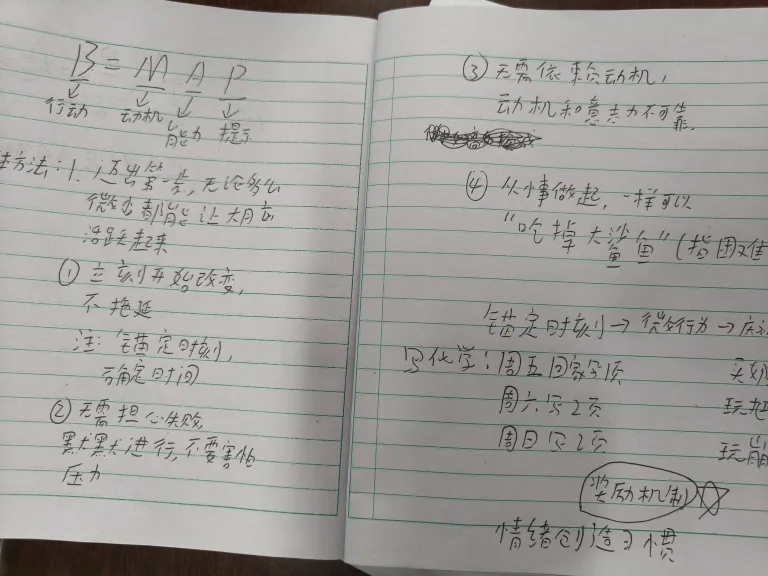 B = M A P
行动 动机 能力 提示
方法: 1. 迈出第一步, 无论多么
微小都能让大脑
活跃起来
① 立刻开始改变,
不拖延
注: 锚定时刻,
确定时间
② 无需担心失败,
默默进行, 不要害怕
压力
③ 无需依赖动机,
动机和意志力不可靠.
④ 从小事做起, 一样可以
“吃掉大鲨鱼” (指困难
锚定时刻 → 微行为 →
写化学: 周五回家写1页
周六写2页 玩
周日写2页 玩
奖励机制☆
情绪创造习惯